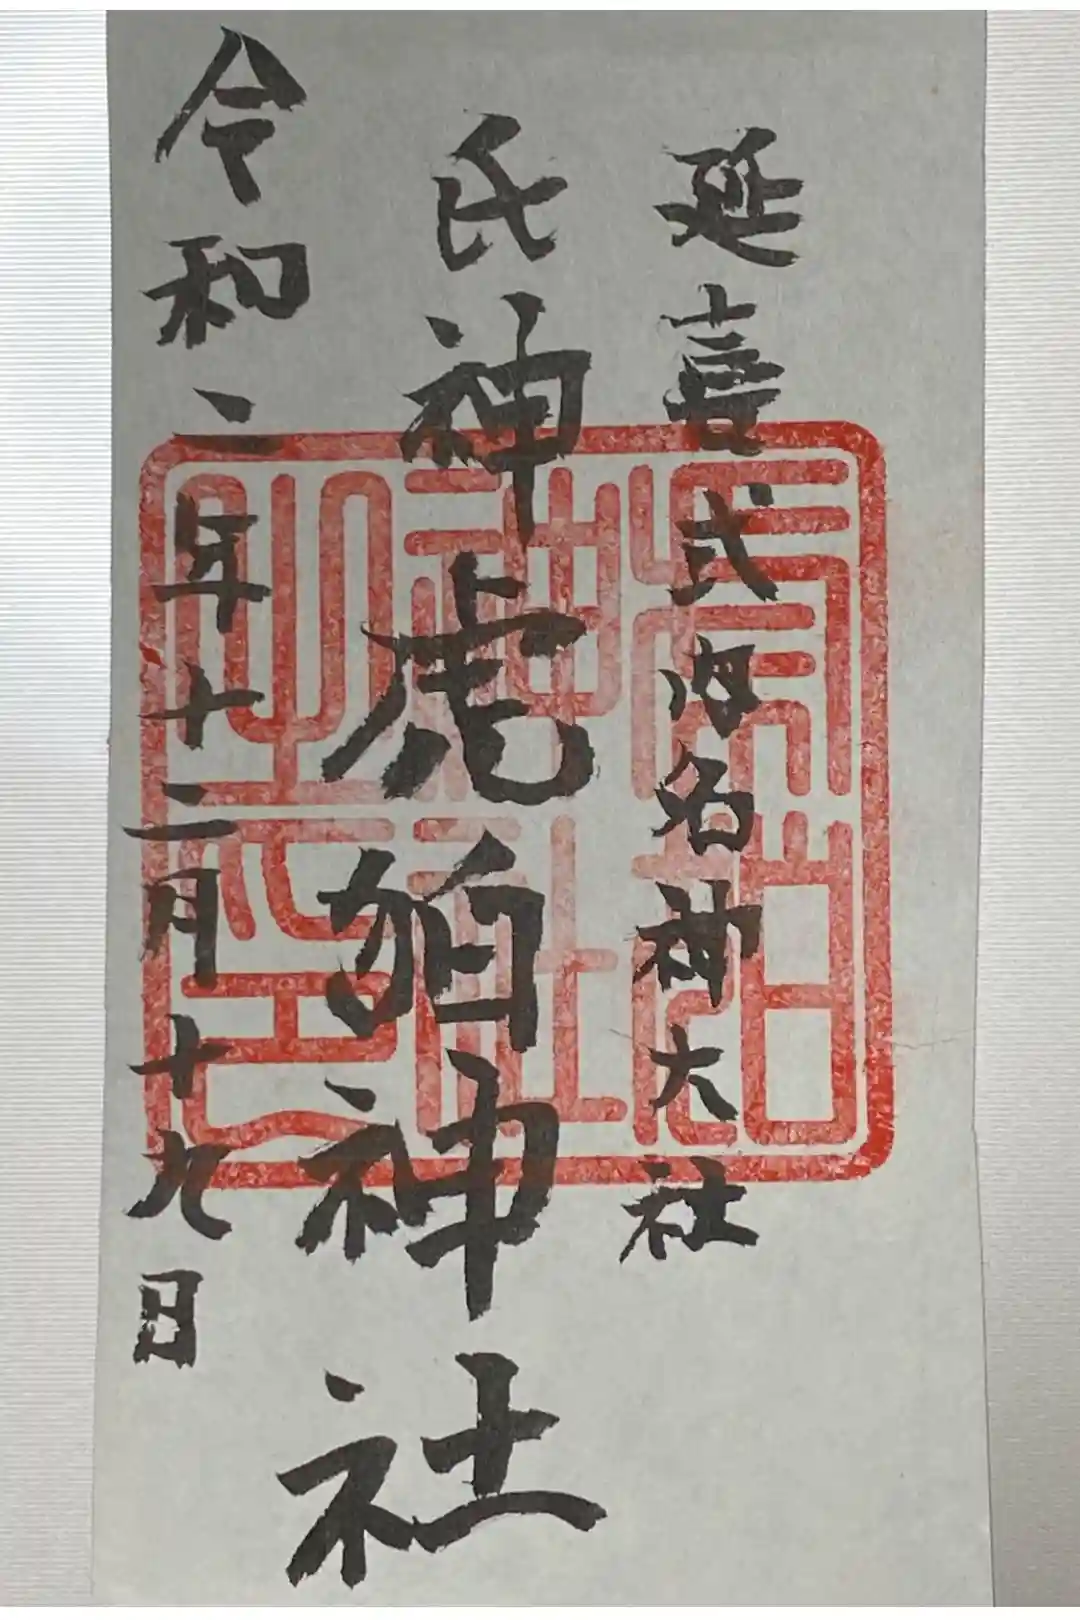 延喜式内名神大社
氏神虎狛神社
令和二年十二月十九日
虎狛
神社
之印